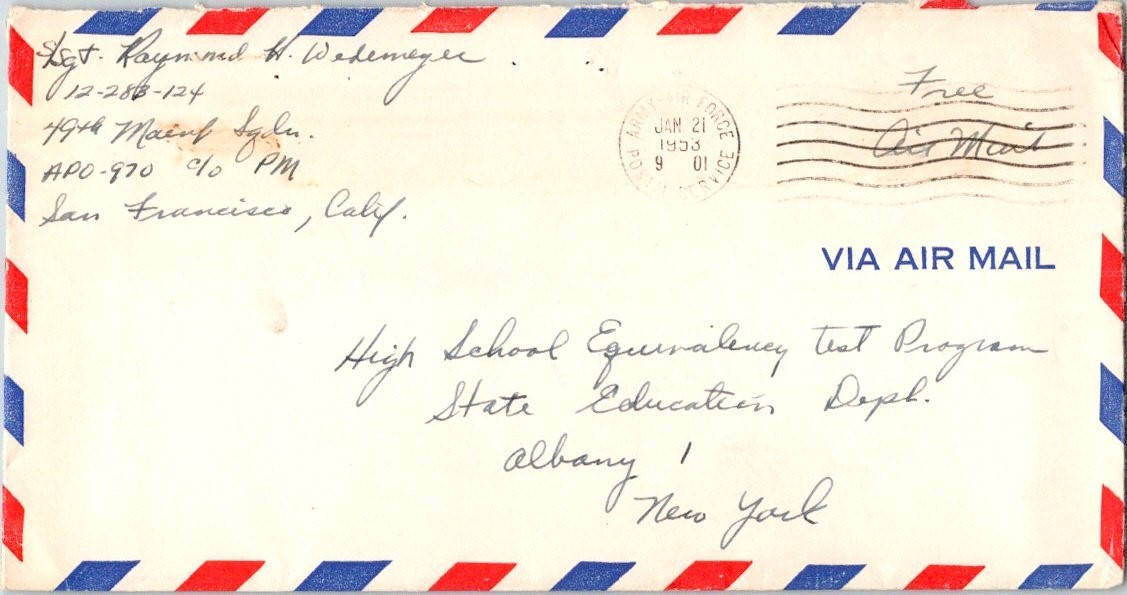 S/Sgt. Raymond H. Wedemeyer
12-283-124
49th Maint Sqdn.
APO-970 c/o PM
San Francisco, Calif.
ARMY-AIR FORCE
POSTAL SERVICE
JAN 21
1953
9 01
Free
Air Mail
VIA AIR MAIL
High School Equivalency test Program
State Education Dept.
Albany 1
New York